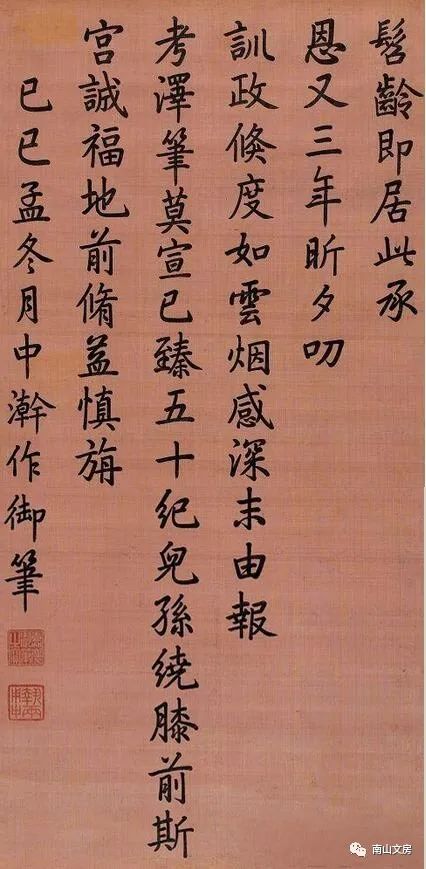 髫齡即居此承
恩又三年昕夕叨
訓政倐度如雲烟感深末由報
考澤筆莫宣已臻五十紀兒孫繞膝前斯
宮誠福地前脩益慎旃
己巳孟冬月中澣作御筆
南山文房